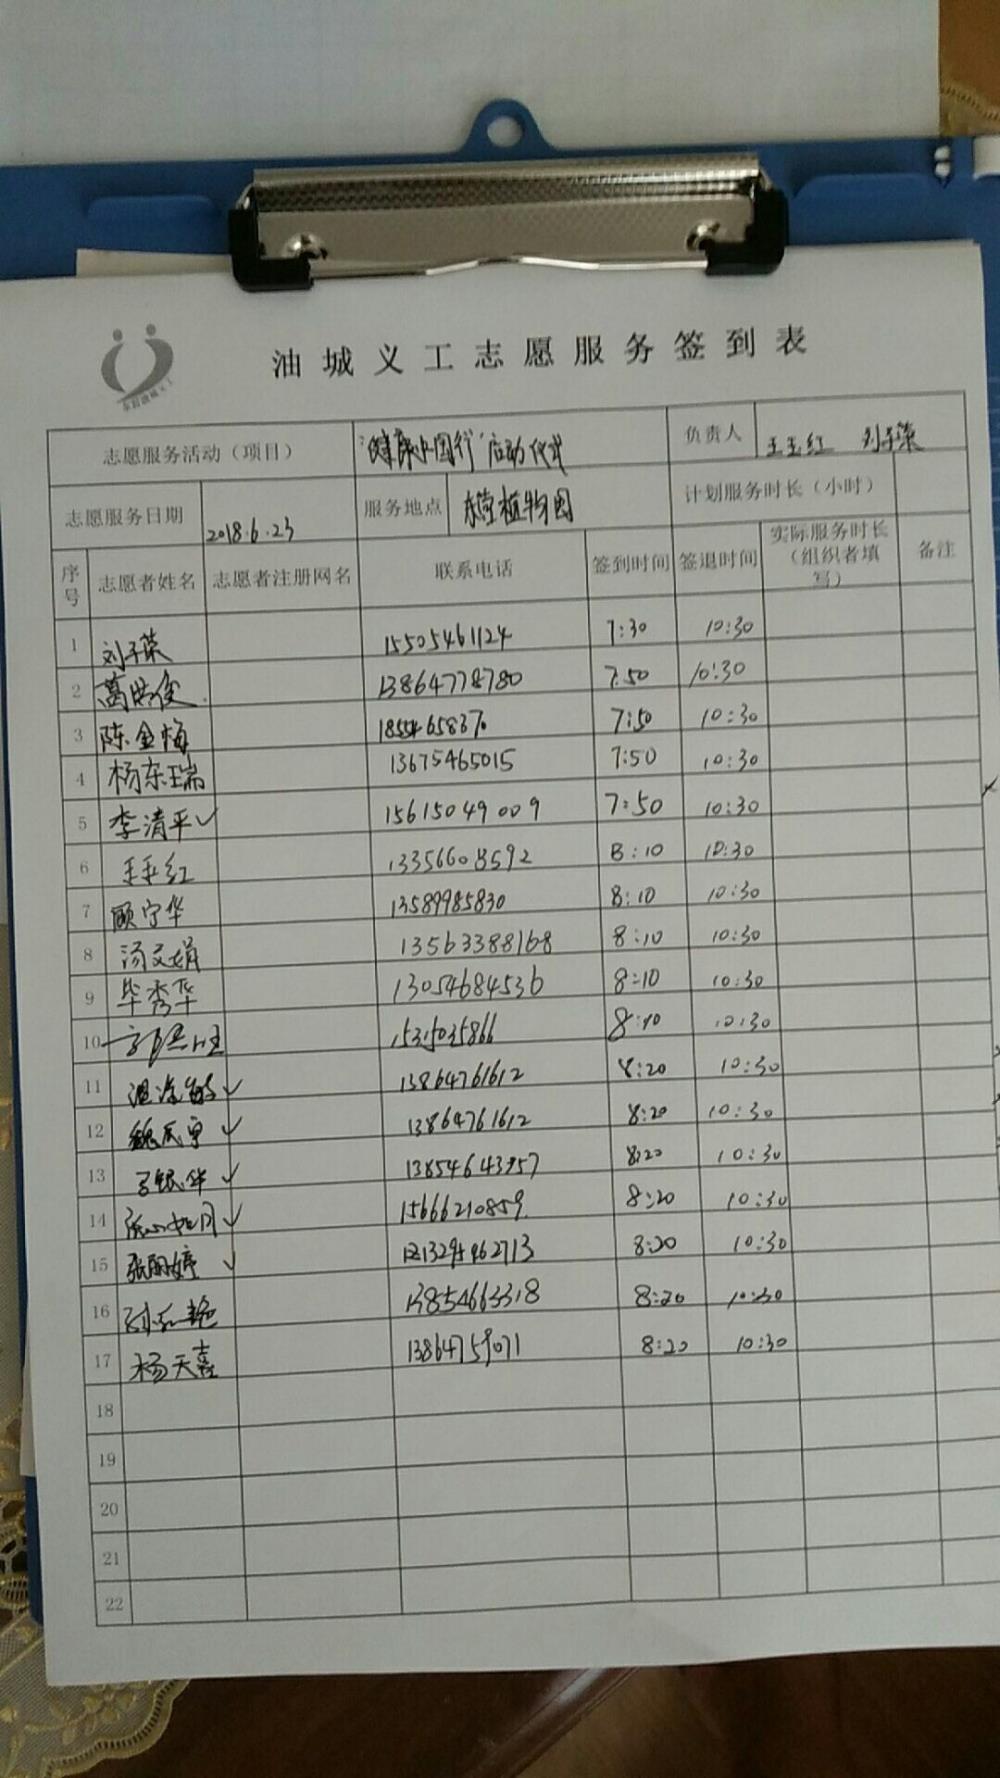 油城义工志愿服务签到表
志愿服务活动（项目） “健康中国行”启动仪式 负责人 王玉红 刘子荣
志愿服务日期 2018.6.23 服务地点 东营植物园 计划服务时长（小时）
序号 志愿者姓名 志愿者注册网名 联系电话 签到时间 签退时间 实际服务时长（组织者填写） 备注
1 刘子荣 15505461124 7:30 10:30
2 葛洪俊 13864778780 7:50 10:30
3 陈金梅 7:50 10:30
4 杨东瑞 13675465015 7:50 10:30
5 李清平✓ 15615049009 7:50 10:30
6 王玉红 13356608592 8:10 10:30
7 顾宁华 13589985830 8:10 10:30
8 汤文娟 13563388168 8:10 10:30
9 毕秀华 13054684536 8:10 10:30
10 8:10 10:30
11 ✓ 13864761612 8:20 10:30
12 ✓ 13864761612 8:20 10:30
13 ✓ 13854643957 8:20 10:30
14 ✓ 15666210859 8:20 10:30
15 张丽婷 ✓ 8:20 10:30
16 13854663318 8:20 10:30
17 杨天喜 13864759071 8:20 10:30
18
19
20
21
22